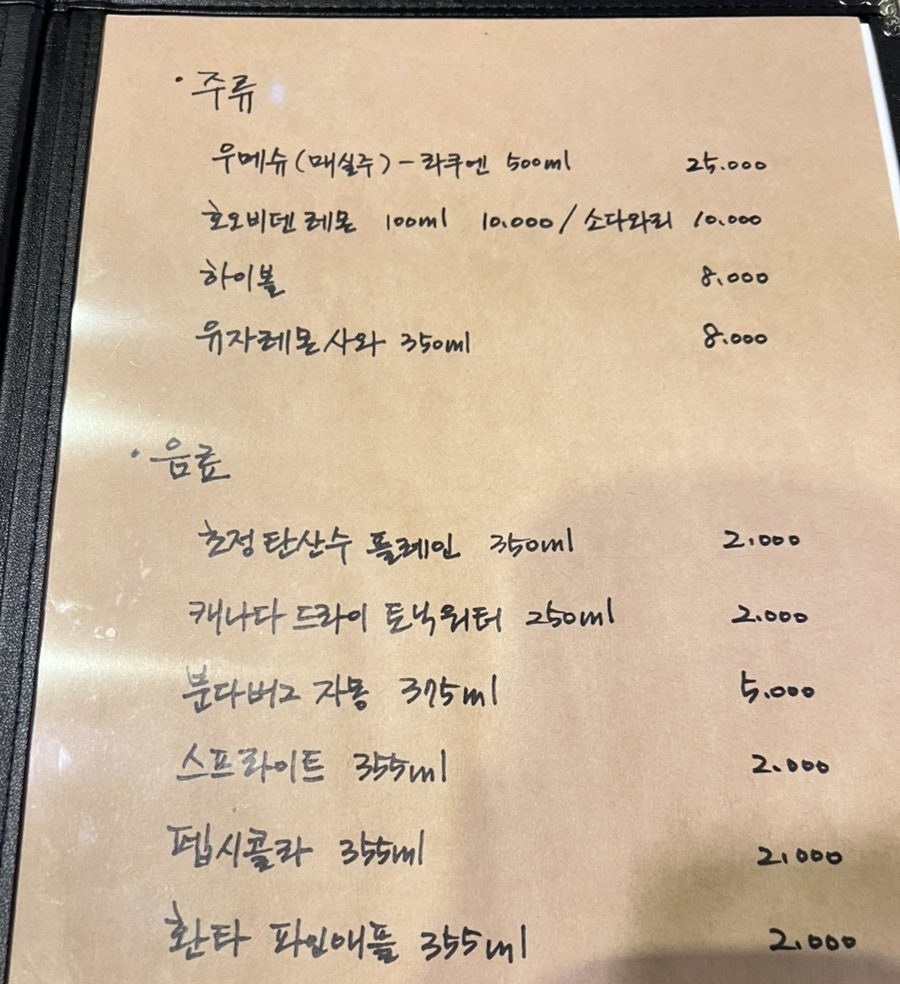 · 주류
우메슈(매실주) - 라쿠엔 500ml 25.000
호오비덴 레몬 100ml 10.000 / 소다와리 10.000
하이볼 8.000
유자레몬사와 350ml 8.000
· 음료
초정탄산수 플레인 350ml 2.000
캐나다 드라이 토닉워터 250ml 2.000
분다버그 자몽 375ml 5.000
스프라이트 355ml 2.000
펩시콜라 355ml 2.000
환타 파인애플 355ml 2.000